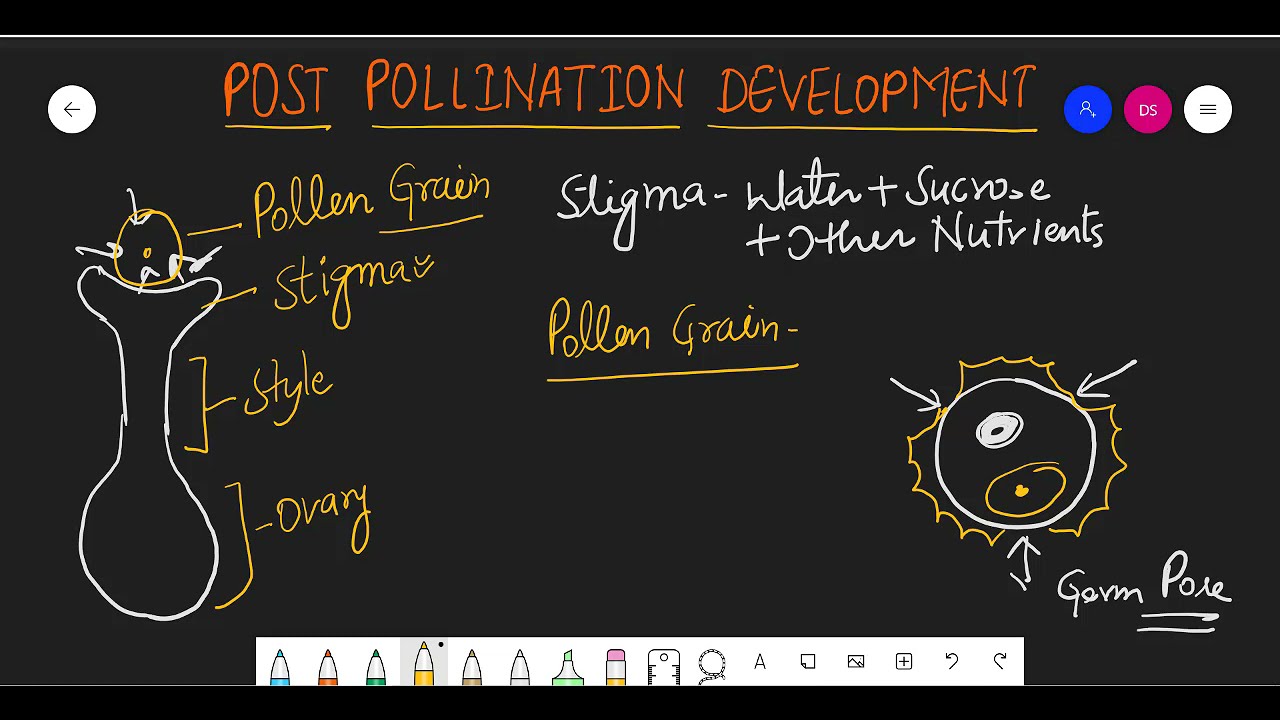 POST POLLINATION DEVELOPMENT
DS
Pollen Grain
Stigma
Style
Ovary
Stigma - Water + Sucrose
+ Other Nutrients
Pollen Grain -
Germ Pore
A